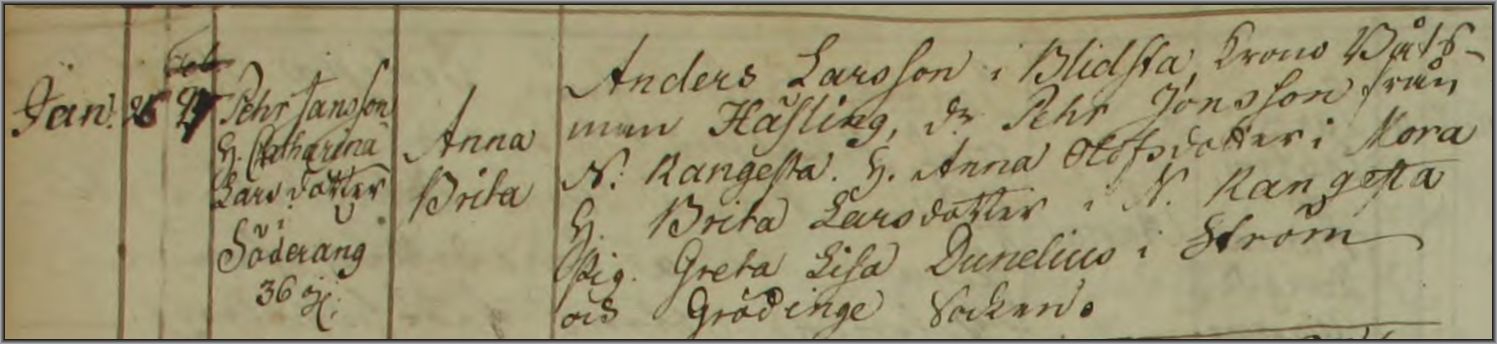 Jan. 26 27
Pehr Jansson
H. Catharina
Lars dotter
i
Söderäng
36 åh.
Anna
Brita
Anders Larsson i Blidsta, Krono Båts-
man Häsling, d: Pehr Jonsson från
N. Kangesta. H. Anna Olofsdotter i Mora
H. Brita Larsdotter i N. Kangesta
Pig. Greta Lisa Dunelius i Ström
vid Grödinge Socken.